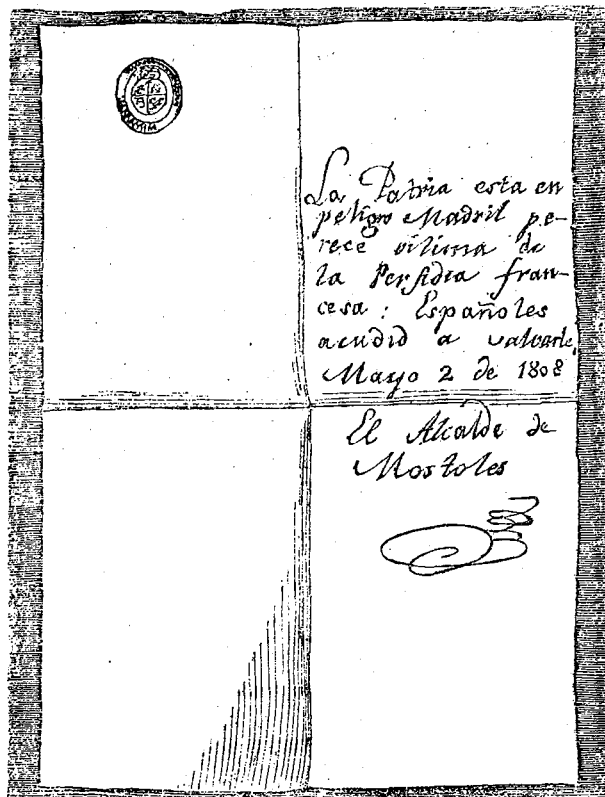 La Patria esta en
peligro Madril pe-
rece vitima de
la Perfidia fran-
cesa : Españoles
acudid a salvarle,
Mayo 2 de 1808
El Alcalde de
Mostoles